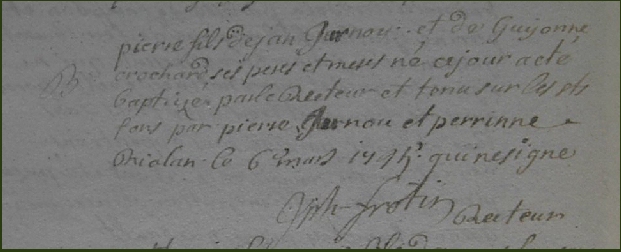 pierre fils de jan Jurnou et de Guijonne
B crochard ses pere et mere né cejour acté
baptizé par le Recteur et tenu sur les sts
fons par pierre Jurnou et perrinne
Riolan le 6e mars qui ne signe
Jph frotin Recteur